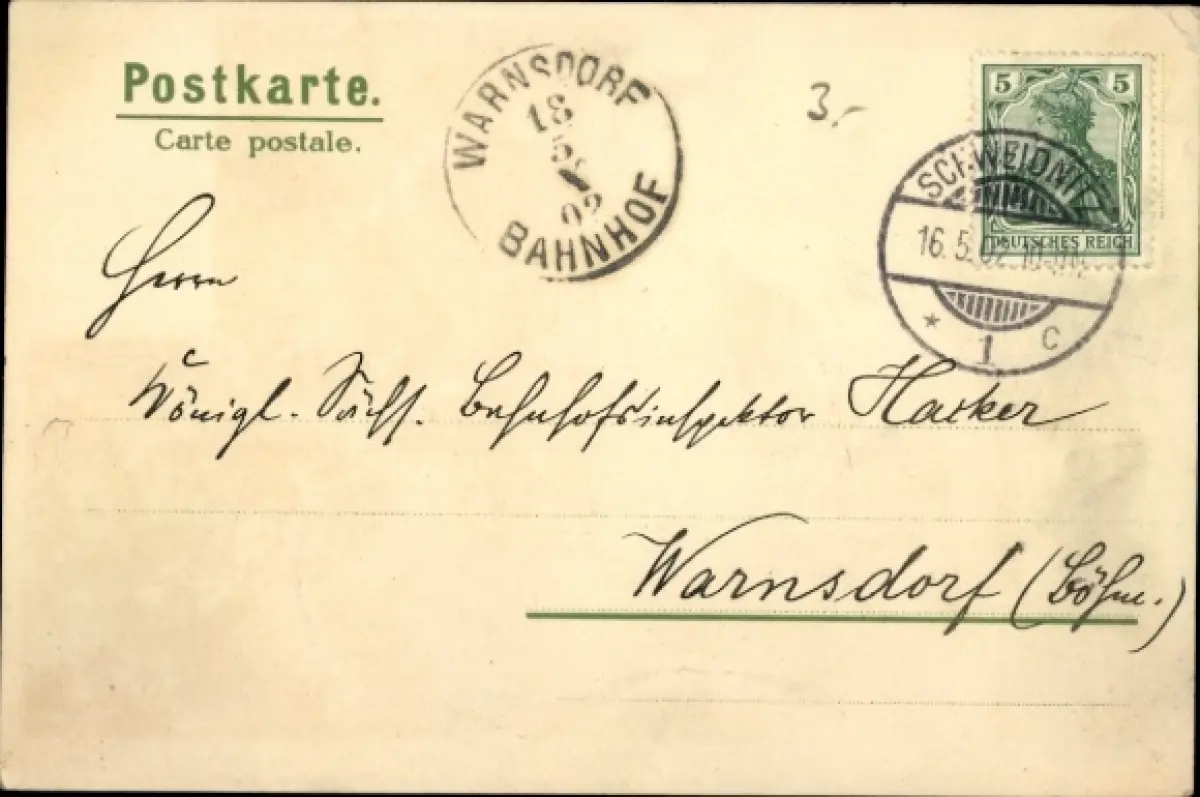 Postkarte.
Carte postale.
WARNSDORF
18
5
02
BAHNHOF
3.-
5 5
DEUTSCHES REICH
SCHWEIDNITZ
16.5.02 10-11N.
* 1 c
Herrn
Königl. Sächs. Bahnhofsinspektor Hacker
Warnsdorf (Böhm.)